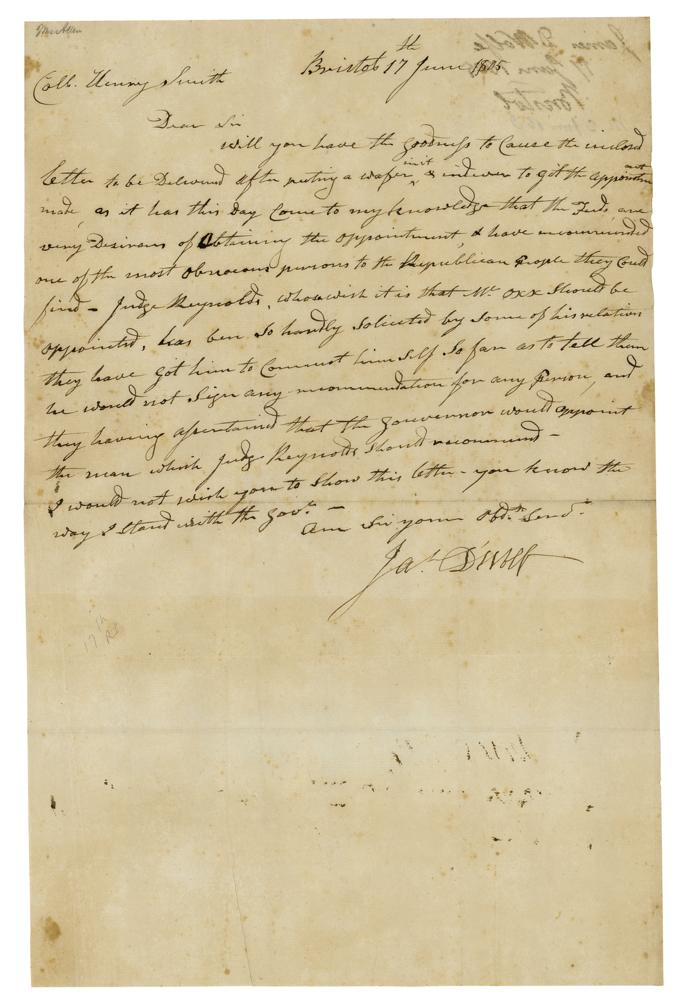 Bristol 17th June 1805
Coll. Henry Smith
Dear Sir
will you have the goodness to Cause the inclosed
letter to be Delivered after puting a wafer in it & indever to git the appointment
made, as it has this Day Come to my knowledge that the Feds, are
very Desirous of Obtaining the appointment, & have recommended
one of the most obnoxious persons to the Republican People they Could
find - Judge Reynolds, whoas wish it is that Mr. Oxx Should be
appointed, has ben So hardly Solicited by Some of his relation
they have got him to Commit himself So far as to tell them
he would not Sign any recommendation for any Person, and
they having assertained that the Gouvernor would appoint
the man which Judge Reynolds Should recommend -
I would not wish you to Show this letter - you know the
way I stand with the Govt. -
Am Sir your Obdt. Servt.
Jas. D'Wolf
17th